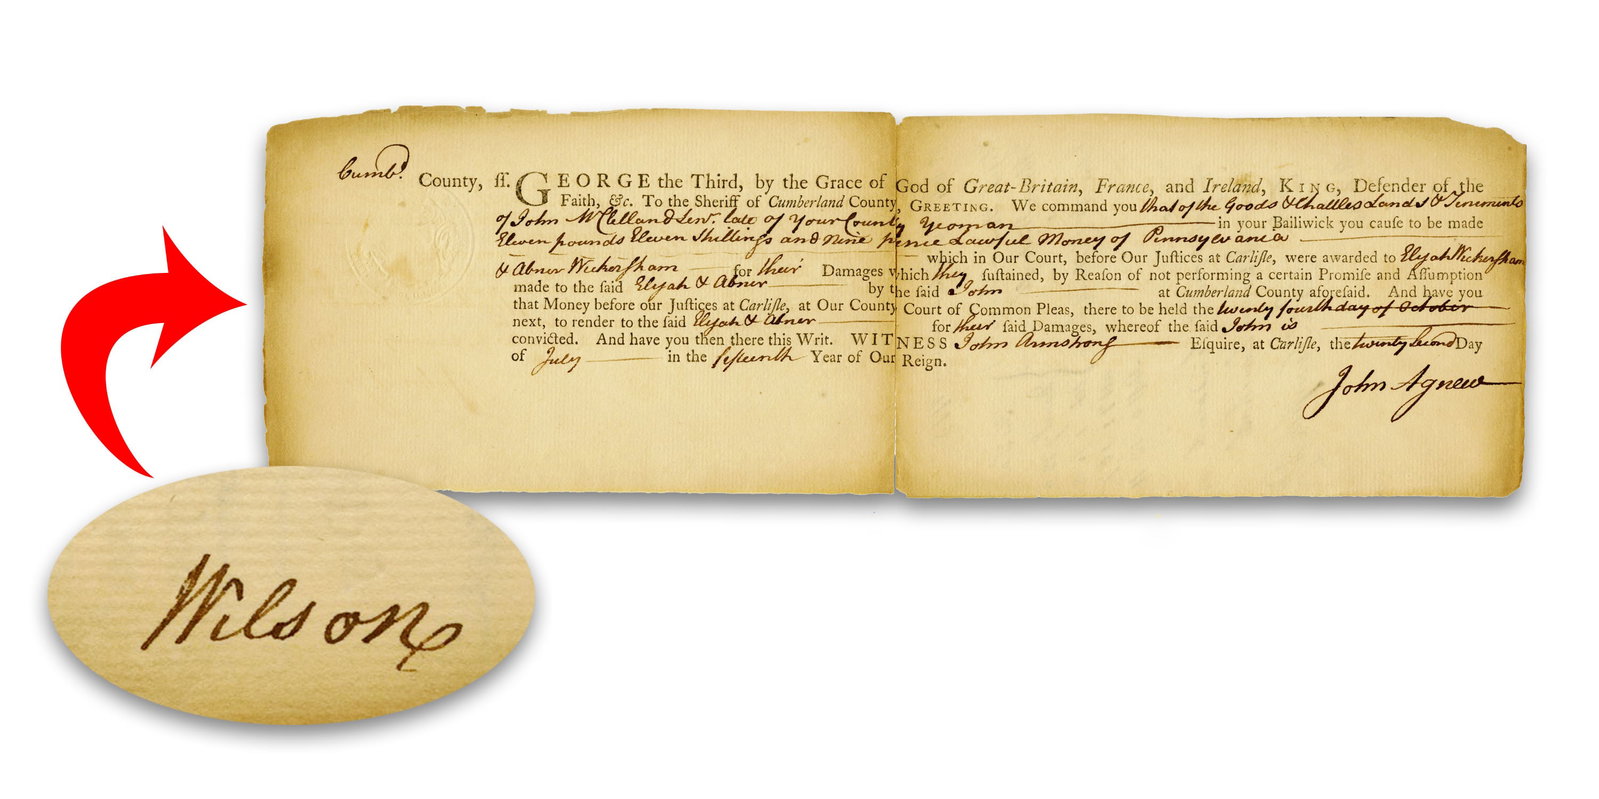 Cumbd. County, ſſ. GEORGE the Third, by the Grace of God of Great-Britain, France, and Ireland, KING, Defender of the
Faith, &c. To the Sheriff of Cumberland County, GREETING. We command you that of the Goods & Chattles Lands & Tenements
of John McClelland Senr. late of Your County Yeoman in your Bailiwick you cauſe to be made
Eleven pounds Eleven Shillings and Nine pence Lawful Money of Pennsylvania
which in Our Court, before Our Juſtices at Carliſle, were awarded to Elijah Wickerſham
& Abner Wickerſham for their Damages which they ſuſtained, by Reaſon of not performing a certain Promiſe and Aſſumption
made to the ſaid Elijah & Abner by the ſaid John at Cumberland County aforeſaid. And have you
that Money before our Juſtices at Carliſle, at Our County Court of Common Pleas, there to be held the twenty fourth day of October
next, to render to the ſaid Elijah & Abner for their ſaid Damages, whereof the ſaid John is
convicted. And have you then there this Writ. WITNESS John Armstrong Eſquire, at Carliſle, the twenty Second Day
of July in the fifteenth Year of Our Reign.
John Agnew
Wilson